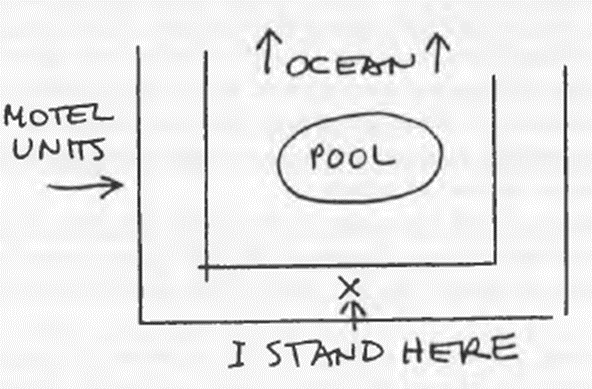 OCEAN
MOTEL
UNITS
POOL
X
I STAND HERE